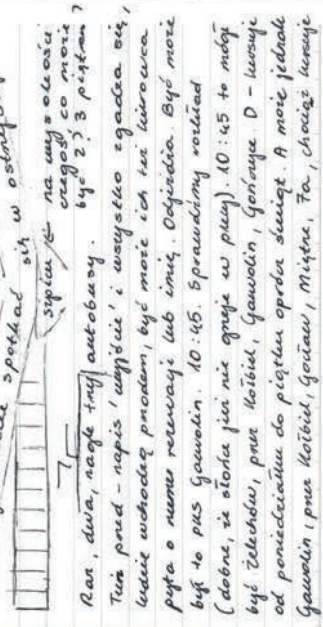 spotkać się w ostrym
sypialnię na wysokości
czegoś co może
być 2 i 3 piętrem?
Raz, dwa, nagle trzy autobusy.
Tuż przed - napis 'wyjście' i wszystko zgadza się,
ludzie wchodzą przodem, być może ich też kierowca
pyta o numer rezerwacji lub imię. Odjeżdża. Być może
był to PKS Garwolin. 10:45. Sprawdźmy rozkład
(dobrze, że słońce już nie grzeje w plecy). 10:45 to mógł
być Żelechów, przez Kołbiel, Garwolin, Gończyce D - kursuje
od poniedziałku do piątku oprócz świąt. A może jednak
Garwolin, przez Kołbiel, Gocław, Miętne, 7a, chociaż kursuje